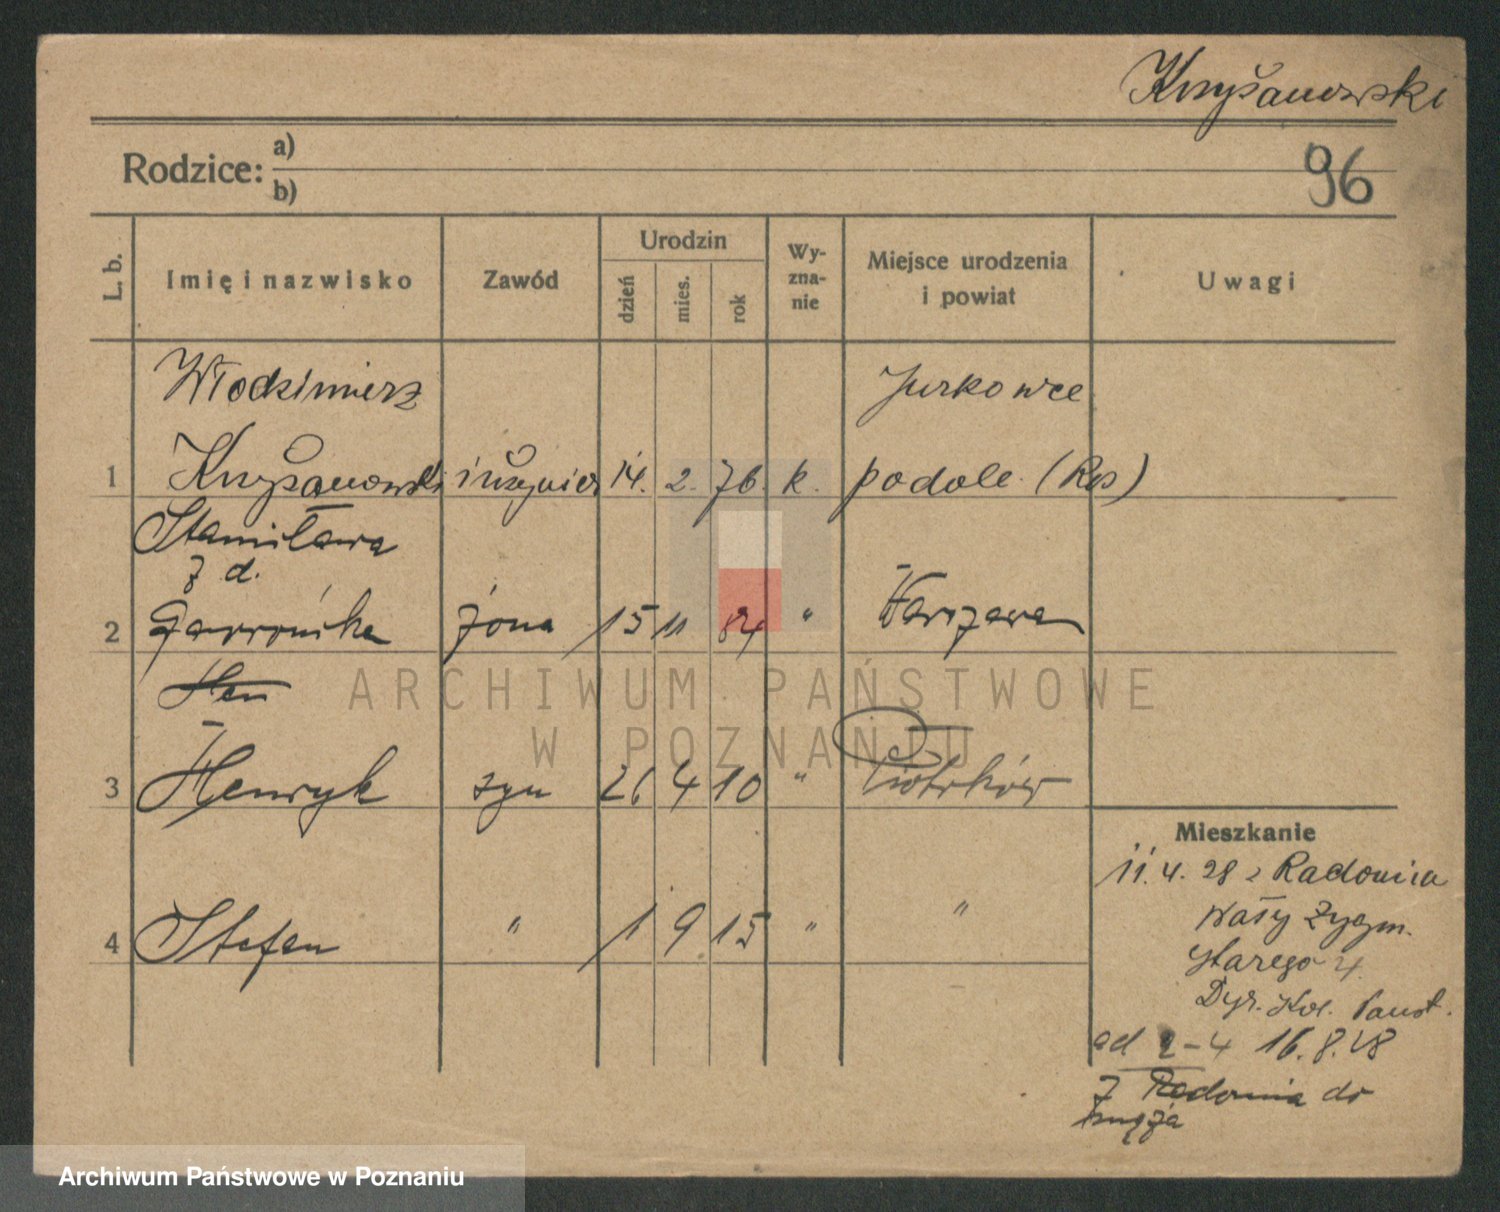 Krzyżanowski
Rodzice: a)
b)
96
L. b.
Imię i nazwisko
Zawód
Urodzin
dzień
mies.
rok
Wy-
zna-
nie
Miejsce urodzenia
i powiat
Uwagi
Włodzimierz
Jurkowce
1 Krzyżanowski inżynier 14. 2. 76. k. podole (Ros)
Stanisława
z d.
2 żona 15 11 84 " Warszawa
Hen
3 Henryk syn 26 4 10 " Piotrków
4 Stefan " 1 9 15 " "
Mieszkanie
11. 4. 28 z Radomia
Wały Zygm.
Starego 4.
Dyr. Kol. Państ.
ad 2-4 16. 8. 28
z Radomia do
męża
ARCHIWUM PAŃSTWOWE
W POZNANIU
Archiwum Państwowe w Poznaniu